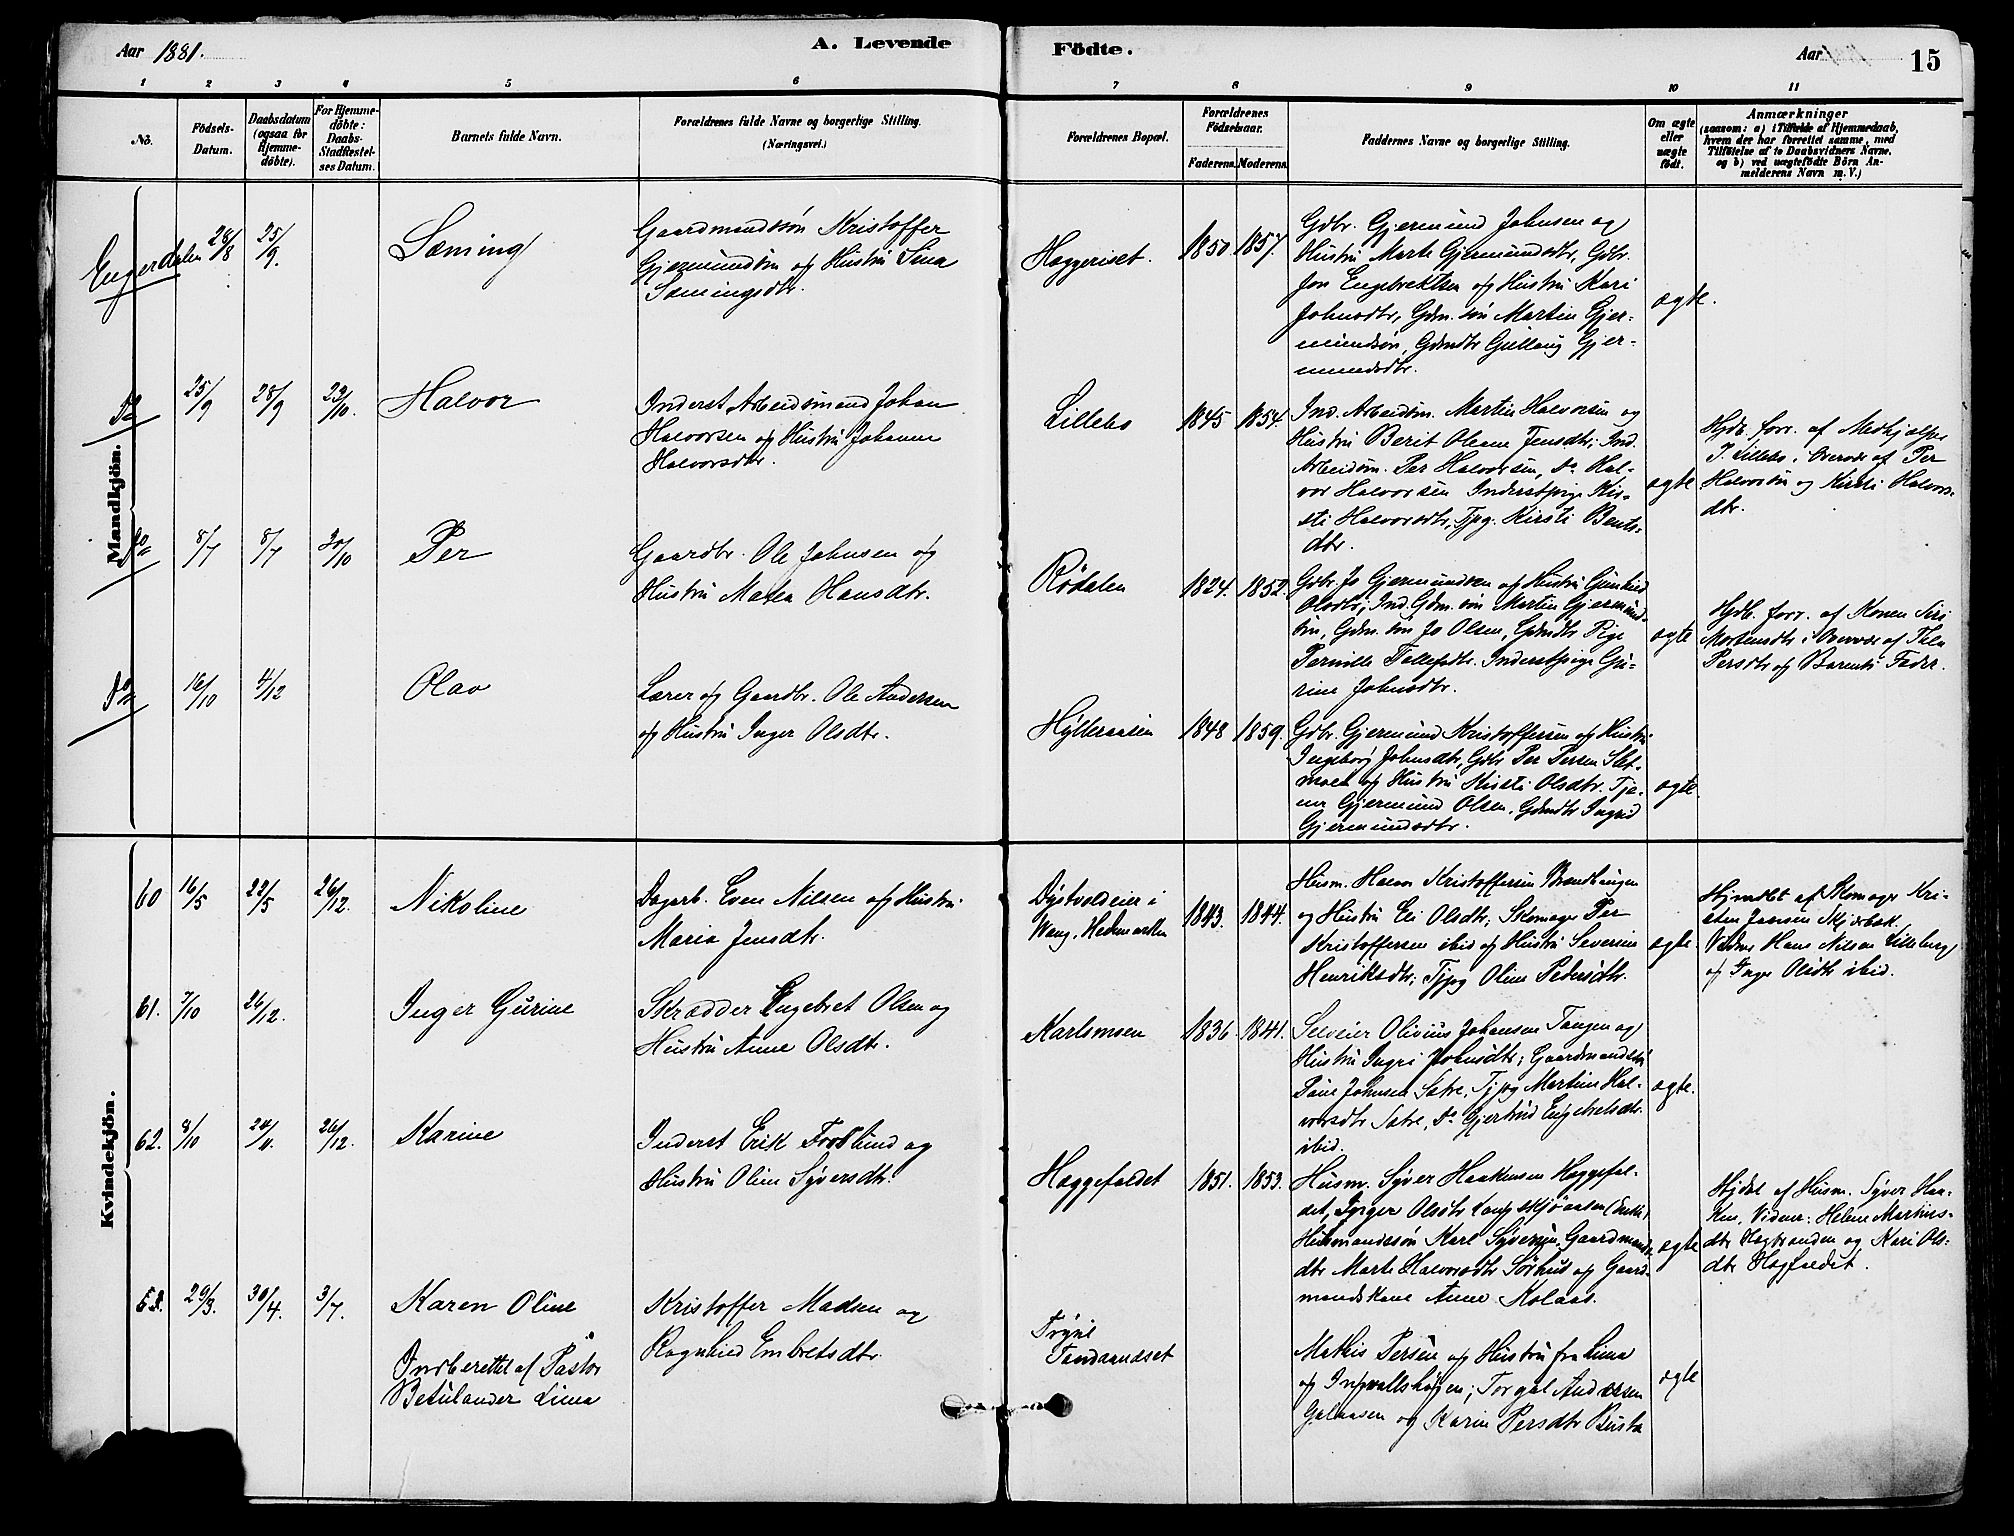 Aar 1881.
A. Levende
Födte.
Aar
15
1 2 3 4 5 6
7 8 9 10 11
No.
Födsels-
Datum.
Daabsdatum
(ogsaa for
Hjemme-
döbte).
For Hjemme-
döbte:
Daabs-
Stadfæstel-
ses Datum.
Barnets fulde Navn.
Forældrenes fulde Navne og borgerlige Stilling.
(Næringsvei.)
Forældrenes Bopæl.
Forældrenes
Födselsaar.
Faderens. Moderens.
Faddernes Navne og borgerlige Stilling.
Om ægte
eller
uægte
födt.
Anmærkninger
(saasom: a) i Tilfælde af Hjemmedaab,
hvem der har forrettet samme, med
Tilföielse af to Daabsvidners Navne,
og b) ved uægtefödte Börn An-
melderens Navn m. V.)
Mandkjön.
Engerdalen 28/8 25/9
Sæming
Gaardmandssön Kristoffer
Gjermundsön og Hustru Sina
Sæmingsdtr.
Haggeriset.
1850 1857.
Gdbr. Gjermund Johnsen og
Hustru Marte Gjermundsdtr, Gdbr.
Jon Engebrektsen og Hustru Kari
Johnsdtr, Gdm. sön Martin Gjer-
mundsön, Gdmdtr Gullaug Gjer-
mundsdtr.
ægte.
Do 25/9 28/9 23/10.
Halvor
Inderst Arbeidsmand Johan
Halvorsen og Hustru Johanne
Halvorsdtr.
Lillebo
1845 1854.
Ind. Arbeidsm. Martin Halvorsen og
Hustru Berit Oleane Jensdtr; Ind.
Arbeidsm. Per Halvorsen, Do Hal-
vor Halvorsen Inderstpige Kir-
sti Halvorsdtr, Tjpg. Kirsti Bents-
dtr.
ægte
Hjdb. forr. af Medhjælper
J. Lillebo i Overvær af Per
Halvorsön og Kirsti Halvors-
dtr.
Do 8/7 8/7 30/10
Per
Gaardbr. Ole Johnsen og
Hustru Matea Hansdtr.
Rödalen
1824. 1852.
Gdbr. Jo Gjermundsen og Hustru Gunhild
Olsdtr; Ind. Gdm. sön Martin Gjermund-
sön, Gdm. sön Jo Olsen, Gdmdtr Pige
Pernille Tollefsdtr. Inderstpige Gu-
rine Johnsdtr.
ægte
Hjdb. forr. af Konen Siri
Mortensdtr i Overvær af Thea
Persdtr og Barnets Fader.
Do 16/10 4/12
Olav
Lærer og Gaardbr. Ole Andersen
og Hustru Inger Olsdtr.
Hylleraasen
1848 1859.
Gdbr. Gjermund Kristoffersen og Hustru
Ingeborg Johnsdtr, Gdbr Per Persen Slet-
moen og Hustru Kirsti Olsdtr. Tje-
ner Gjermund Olsen, Gdmdtr Ingrid
Gjermundsdtr.
ægte.
Kvindekjön.
60 16/5 22/5 26/12.
Nikoline
Dagarb. Even Nilsen og Hustru
Maria Jensdtr.
Dystvoldeier i
Vang, Hedemarken
1843. 1844.
Husm. Halvor Kristoffersen Brændhaugen
og Hustru Eli Olsdtr, Skomager Per
Kristoffersen ibid og Hustru Severine
Henriksdtr; Tjpg Oline Pedersdtr.
ægte.
Hjmdbt af Skomager Kri-
sten Jansen Skjærbæk.
Vidner Hans Nilsen Lilleberg
og Inger Olsdtr ibid.
61. 7/10 26/12.
Inger Gurine
Skrædder Engebret Olsen og
Hustru Anne Olsdtr.
Karlsmoen
1836. 1841.
Selveier Olivius Johansen Tangen og
Hustru Ingri Johnsdtr; Gaardmandssön
Paul Johnsen Sætre, Tjpg Martine Hal-
vorsdtr Sætre, Do Gjertrud Engebretsdtr.
ibid.
ægte.
62. 8/10 20/11. 26/12.
Karine
Inderst Erik Forslund og
Hustru Oline Syversdtr.
Haggefaldet
1851. 1853.
Husm. Syver Haakensen Haggefal-
det, Syver Olsdtr Langskjöaasen
Husmandssön Karl Syversen, Gaardmands-
dtr Marte Halvorsdtr Sörhus og Gaard-
mandskone Anne Kolaas.
ægte
Hjdbt af Husm. Syver Haa-
ken, Vidner: Helene Martins-
dtr Hagbranden og Kari Ols-
dtr Hagfaldet.
63. 29/3. 30/4. 3/7.
Karen Oline
Indberettet af Pastor
Betulander Lima
Kristoffer Madsen og
Ragnhild Embretsdtr.
Trysil
Tandaandset
Mathis Persen og Hustru fra Lima
og Ingvallshögen; Torgal Andersen
Galaasen og Karin Persdtr Busta
ægte